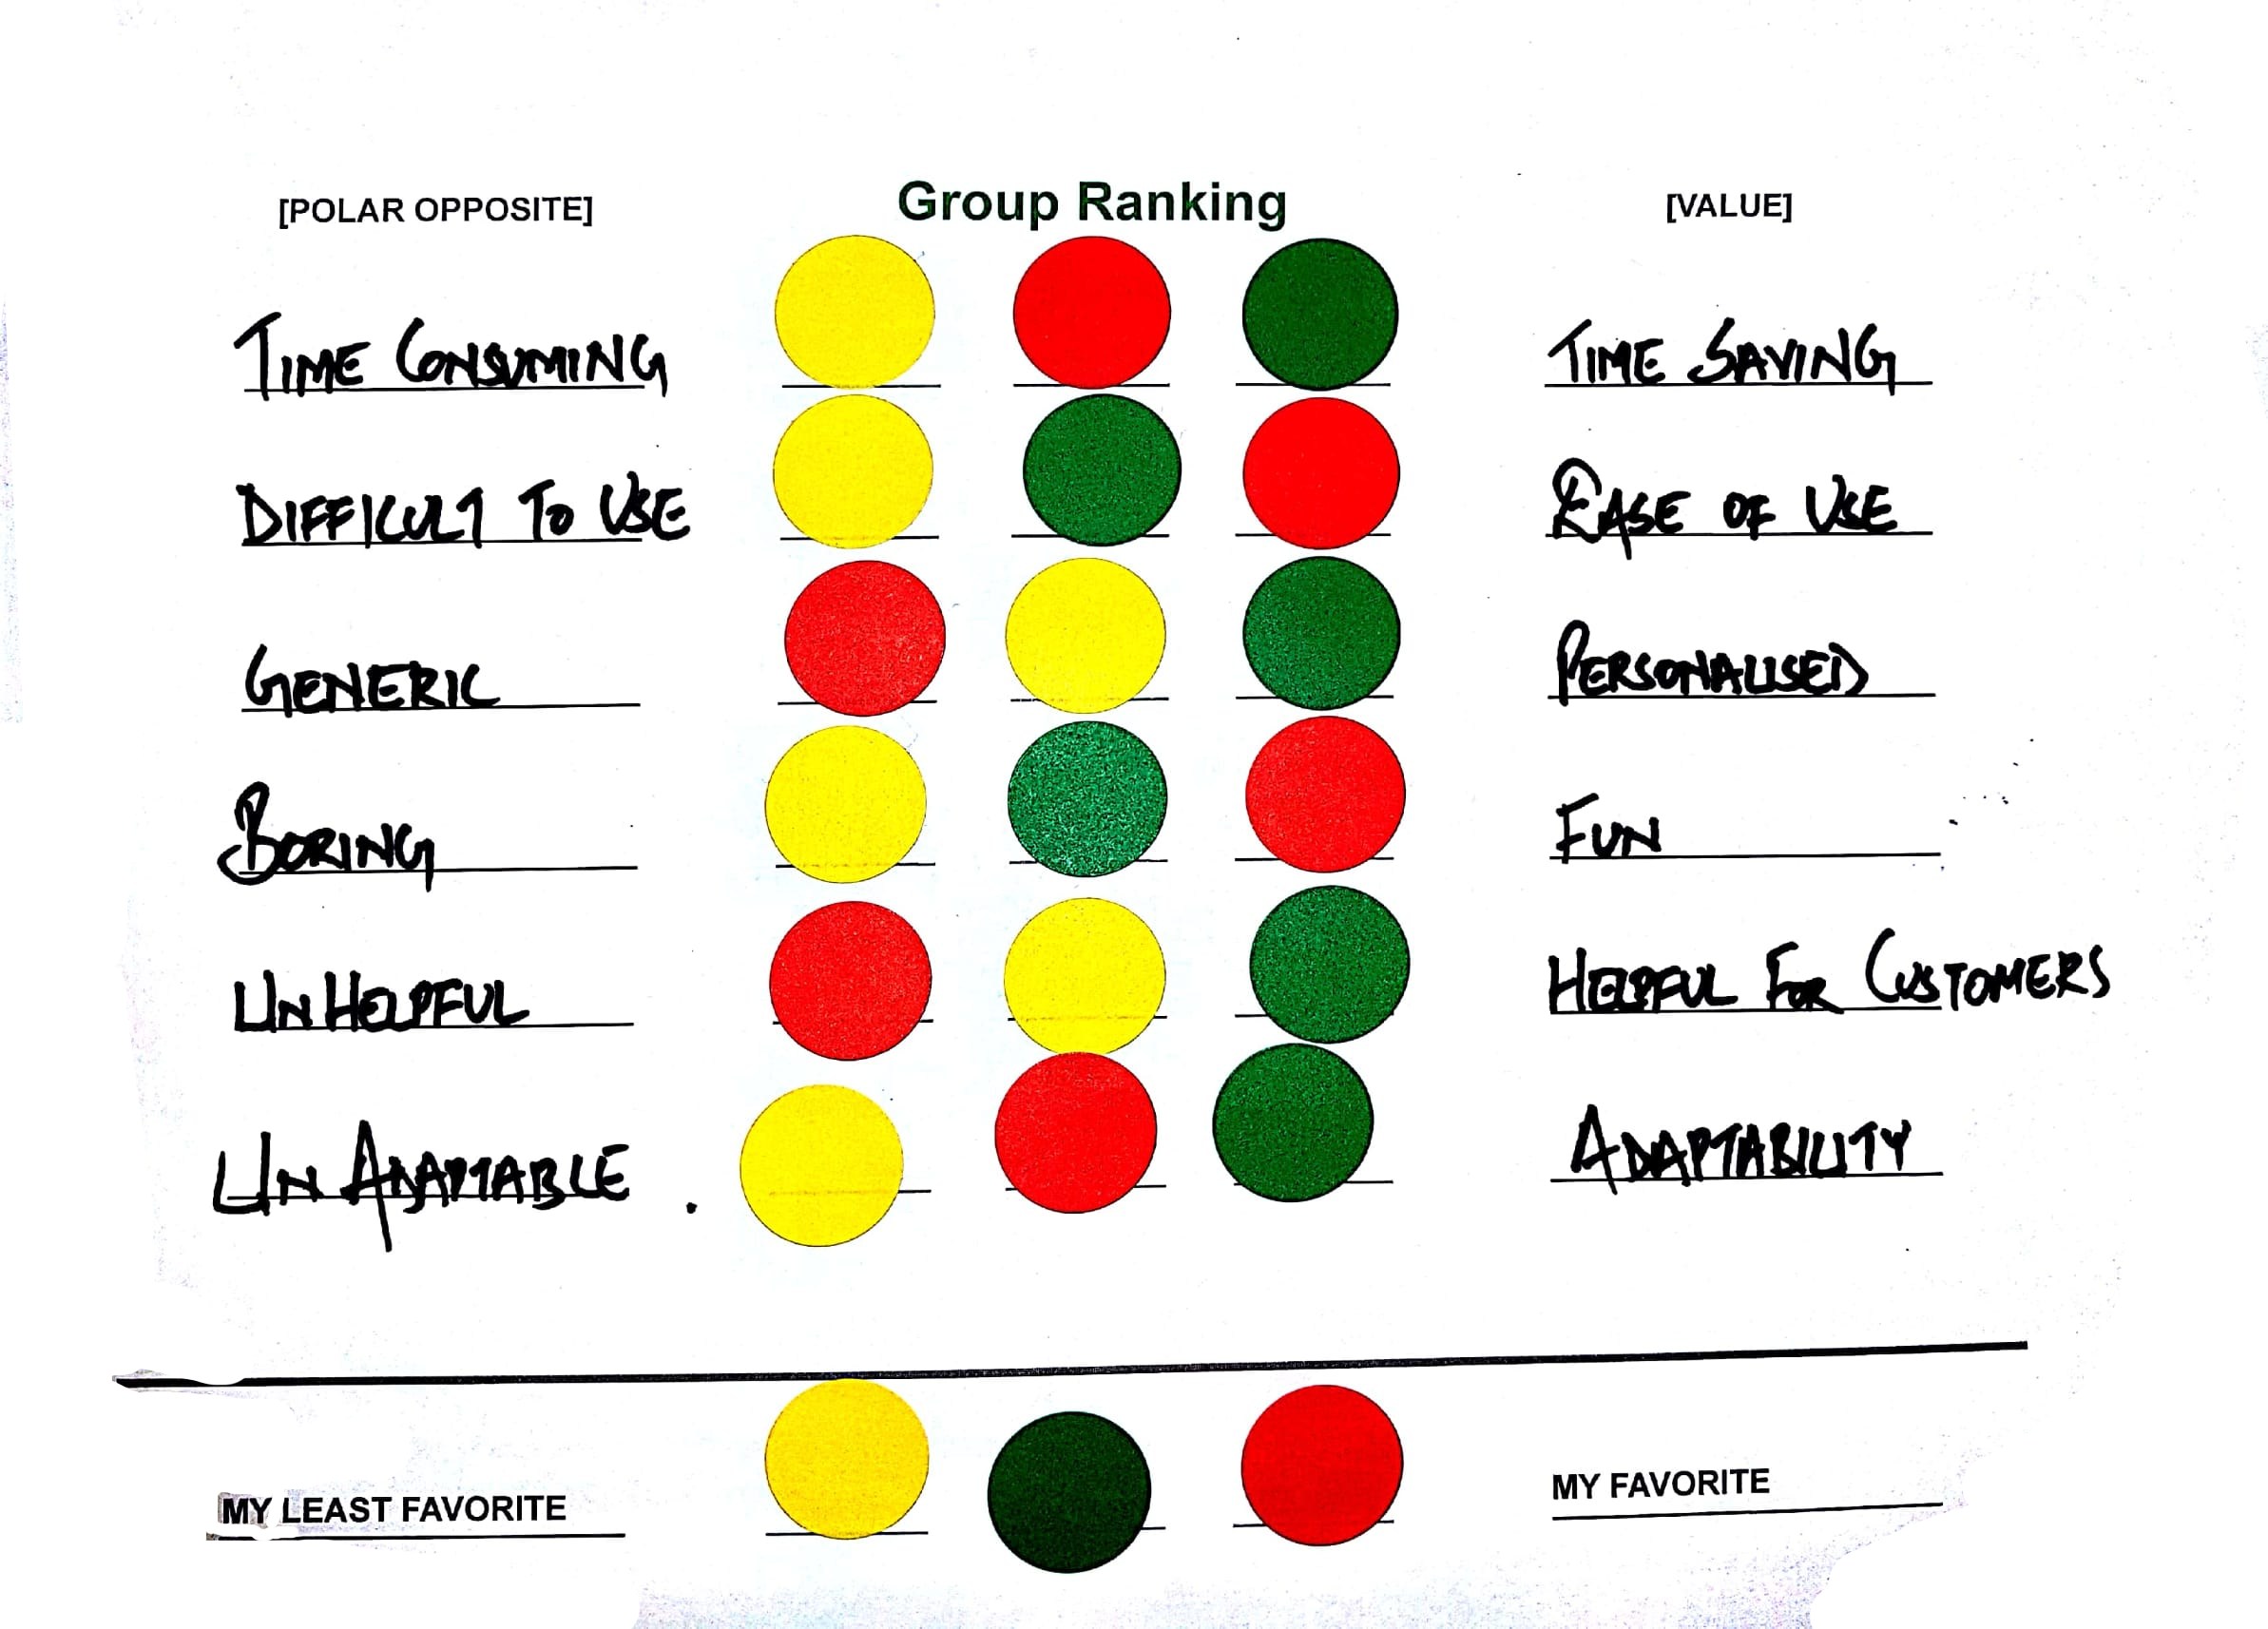 [POLAR OPPOSITE] Group Ranking [VALUE]
TIME CONSUMING TIME SAVING
DIFFICULT TO USE EASE OF USE
GENERIC PERSONALISED
BORING FUN
UNHELPFUL HELPFUL FOR CUSTOMERS
UN ADAPTABLE . ADAPTABILITY
MY LEAST FAVORITE MY FAVORITE